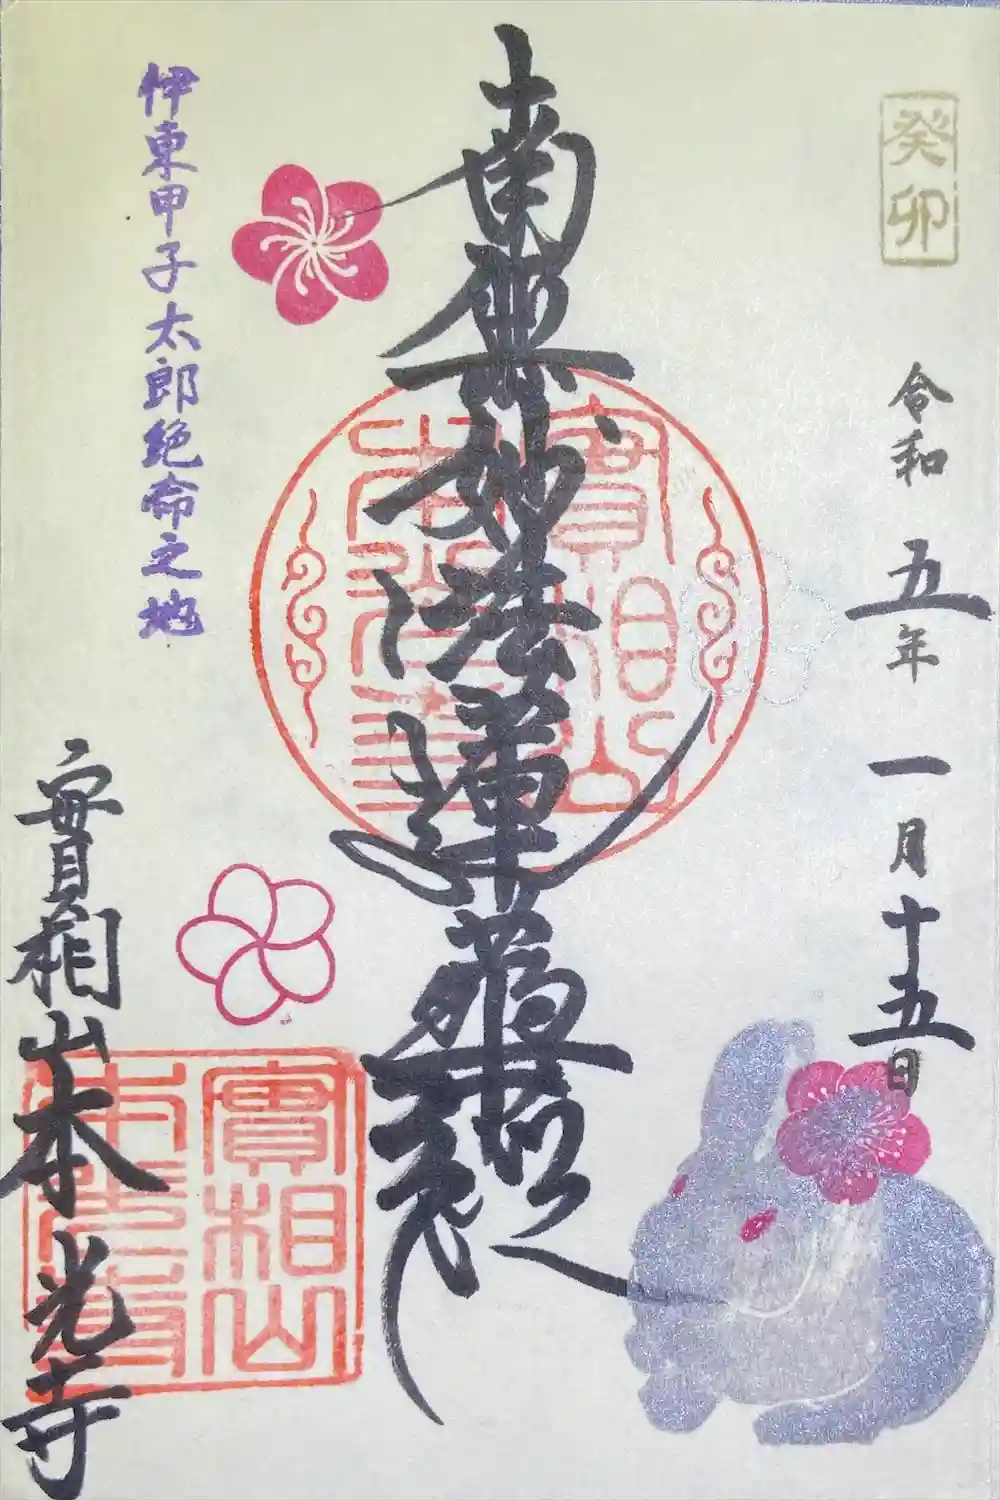 癸卯
令和五年一月十五日
南無妙法蓮華經
實相山
本光寺
伊東甲子太郎絶命之地
實相山本光寺
實相山
本光寺